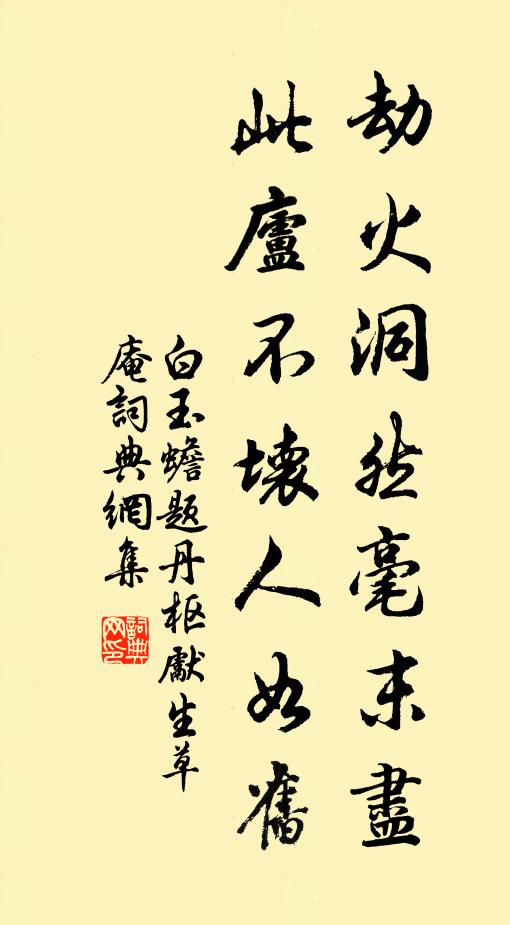 劫火洞然毫末盡
此廬不壞人如舊
白玉蟾題丹枢獻生草
庵詞典網集
詞典網印